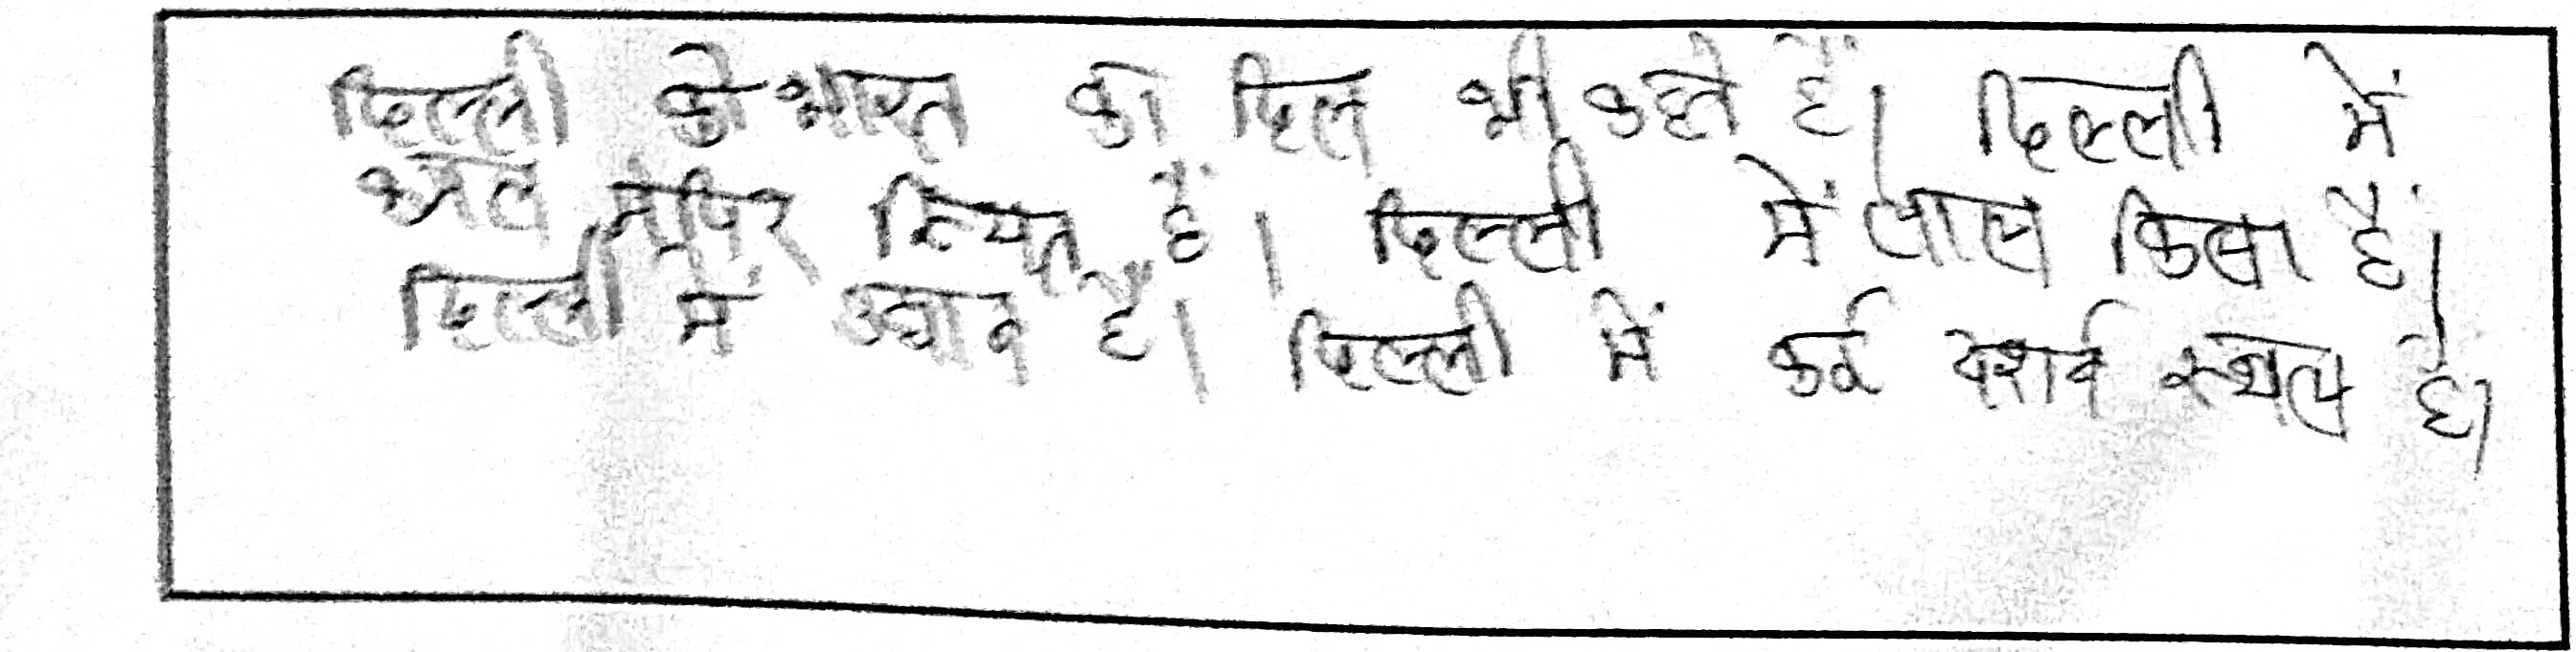 दिल्ली को भारत का दिल भी कहते हैं। दिल्ली में
मंदिर स्थित हैं। दिल्ली में लाल किला हैं।
दिल्ली में उद्यान हैं। दिल्ली में कई दशर्न स्थल है।